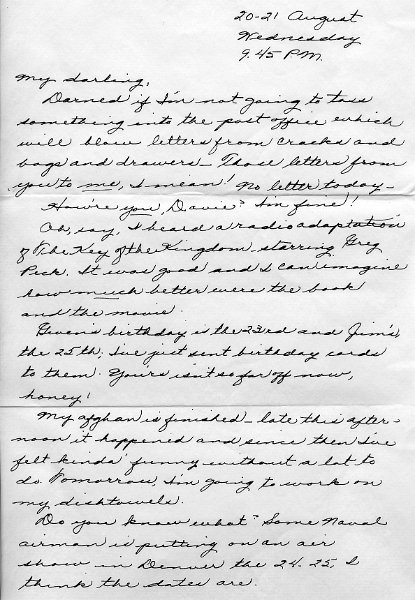 20-21 August
Wednesday
9:45 P.M.
My darling,
Darned if I'm not going to toss
something into the post office which
will blow letters from cracks and
bags and drawers - Those letters from
you to me, I mean! No letter today -
How're you, Davie? I'm fine!
Oh, say, I heard a radio adaptation
of The Key of the Kingdom, starring Greg
Peck. It was good and I can imagine
how much better were the book
and the movie.
Gwen's birthday is the 23rd and Jim's,
the 25th. I've just sent birthday cards
to them. Yours isn't so far off now,
honey!
My afghan is finished - late this after-
noon it happened and since then I've
felt kinda' funny without a lot to
do. Tomorrow I'm going to work on
my dishtowels.
Do you know what? Some Naval
airman is putting on an air
show in Denver the 24-25, I
think the dates are.